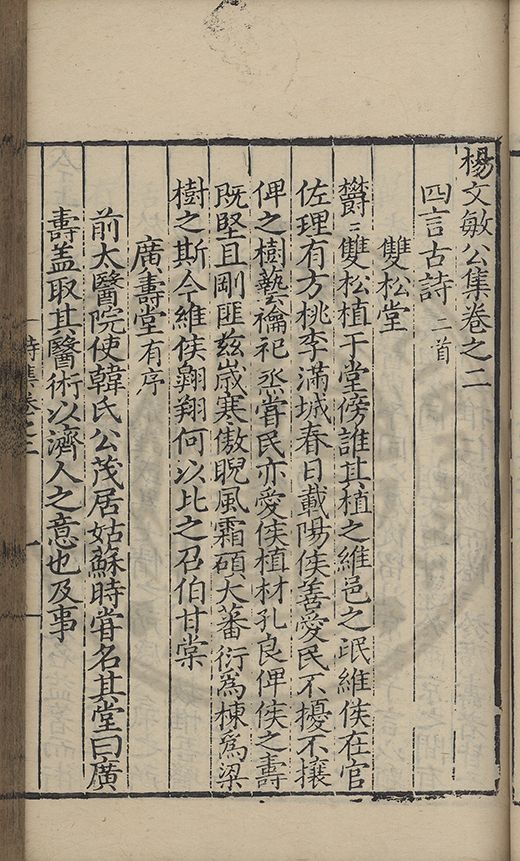 楊文敏公集卷之二
四言古詩 二首
雙松堂
欝〻雙松植于堂傍誰其植之維邑之氓維侯在官
佐理有方桃李滿城春日載陽侯善愛民不擾不攘
俾之樹藝禴祀烝甞民亦愛侯植材孔良俾侯之壽
既堅且剛匪兹嵗寒傲睨風霜碩大蕃衍爲棟爲梁
樹之斯今維侯翺翔何以比之召伯甘棠
廣壽堂 有序
前太醫院使韓氏公茂居姑蘇時甞名其堂曰廣
壽盖取其醫術以濟人之意也及事
詩集卷之二 一